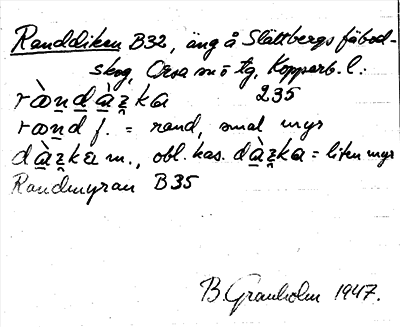 Randdiken B32, äng å Slättbergs fäbod-
skog, Orsa sn ö tg, Kopparb. l.
ràn̲d̲àz̲ka 235
ran̲d f. = rand, smal myr
dàz̲kɑ m., obl. kas. dàz̲ka = liten myr
Randmyran B35
B. Granholm 1947.